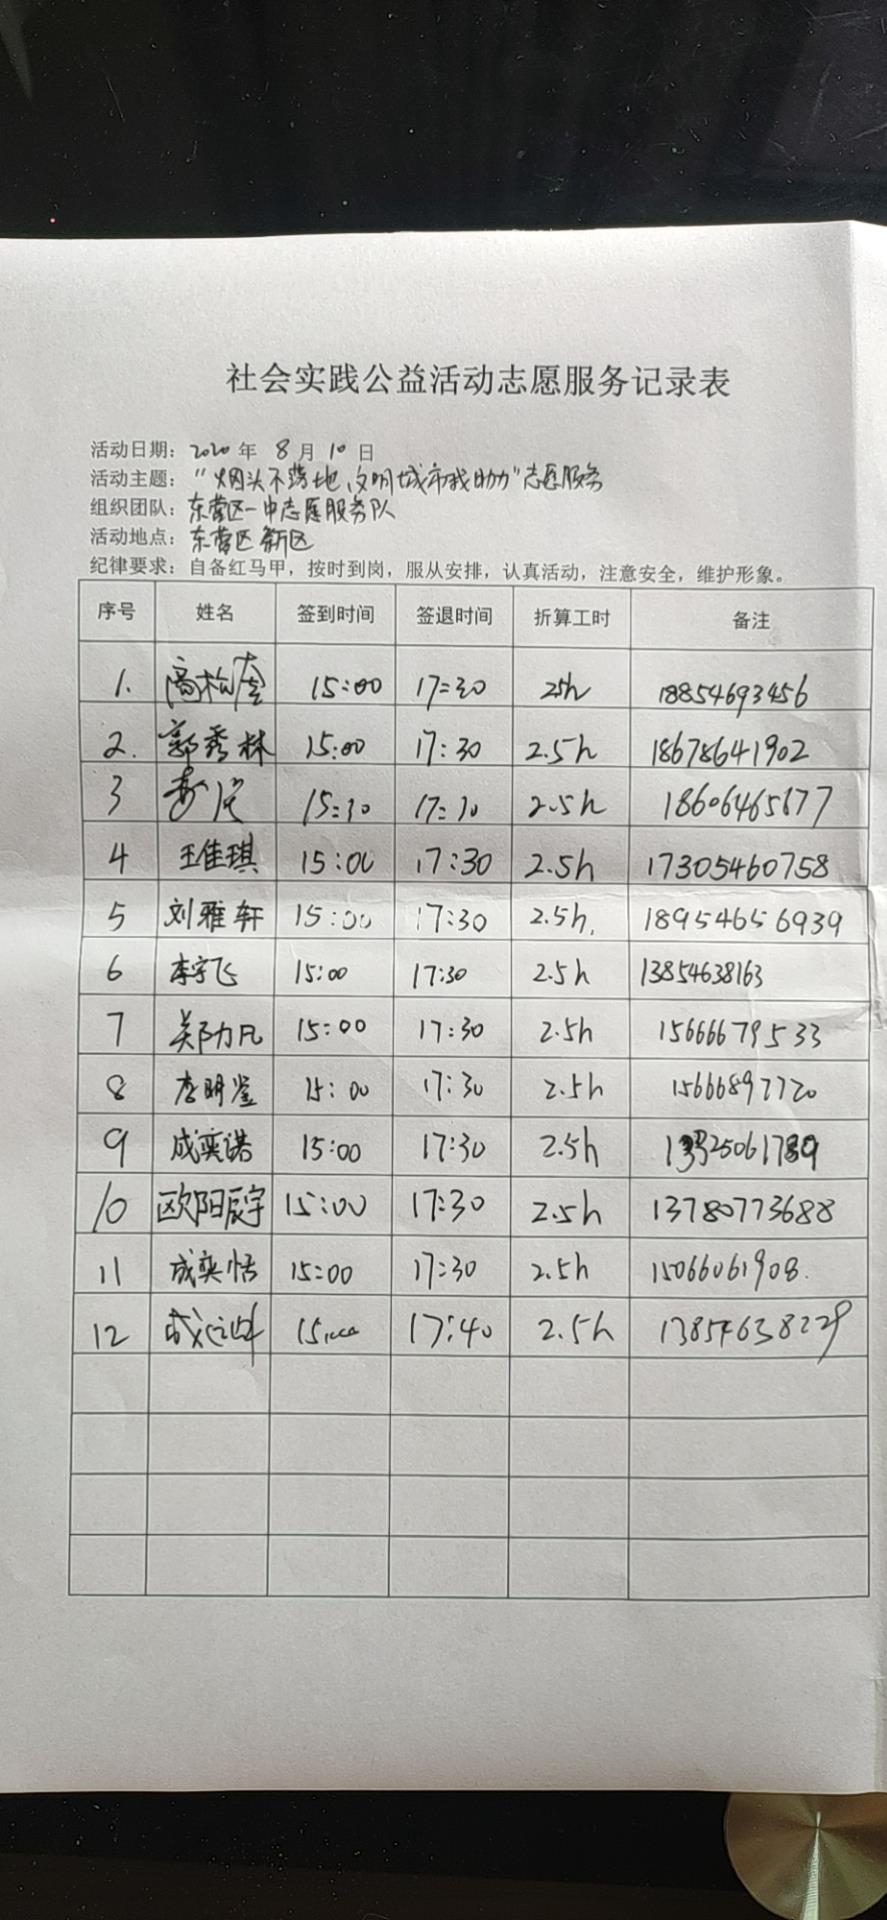 社会实践公益活动志愿服务记录表
活动日期：2020年 8月10日
活动主题：“烟头不落地、文明城市我助力”志愿服务
组织团队：东营区一中志愿服务队
活动地点：东营区新区
纪律要求：自备红马甲，按时到岗，服从安排，认真活动，注意安全，维护形象。
序号 姓名 签到时间 签退时间 折算工时 备注
1. 15:00 17:30 25h 18854693456
2. 郭秀林 15:00 17:30 2.5h 18678641902
3 15:30 17:30 2.5h
4 王佳琪 15:00 17:30 2.5h 17305460758
5 刘雅轩 15:00 17:30 2.5h. 18954656939
6 李宇飞 15:00 17:30 2.5h 13854638163
7 15:00 17:30 2.5h 15666679533
8 李明鉴 15:00 17:30 2.5h 15666897720
9 成奕诺 15:00 17:30 2.5h
10 欧阳辰宇 15:00 17:30 2.5h 13780773688
11 成奕恬 15:00 17:30 2.5h 15066061908.
12 17:40 2.5h 13854638229